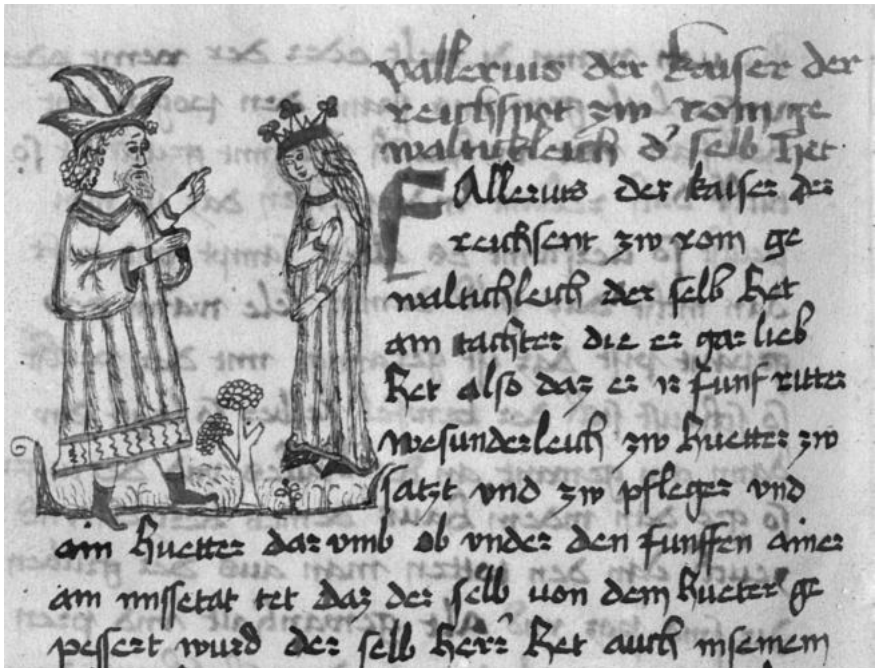 Vallerius der kaiser der
reichsnet zw rom ge
waltickleich d' selb Het
FAllerius der kaiser der
reichsent zw rom ge
waltichleich der selb Het
ain tachter die er gar lieb
Het also daz er ir funf ritter
wesunderleich zw Huetter zw
satzt vnd zw pfleger vnd
ain Huetter dar vmb ob vnder den funffen ainer
ain missetat tet daz der selb von dem Hueter ge
pessert wurd der selb Herr Het auch in seinem